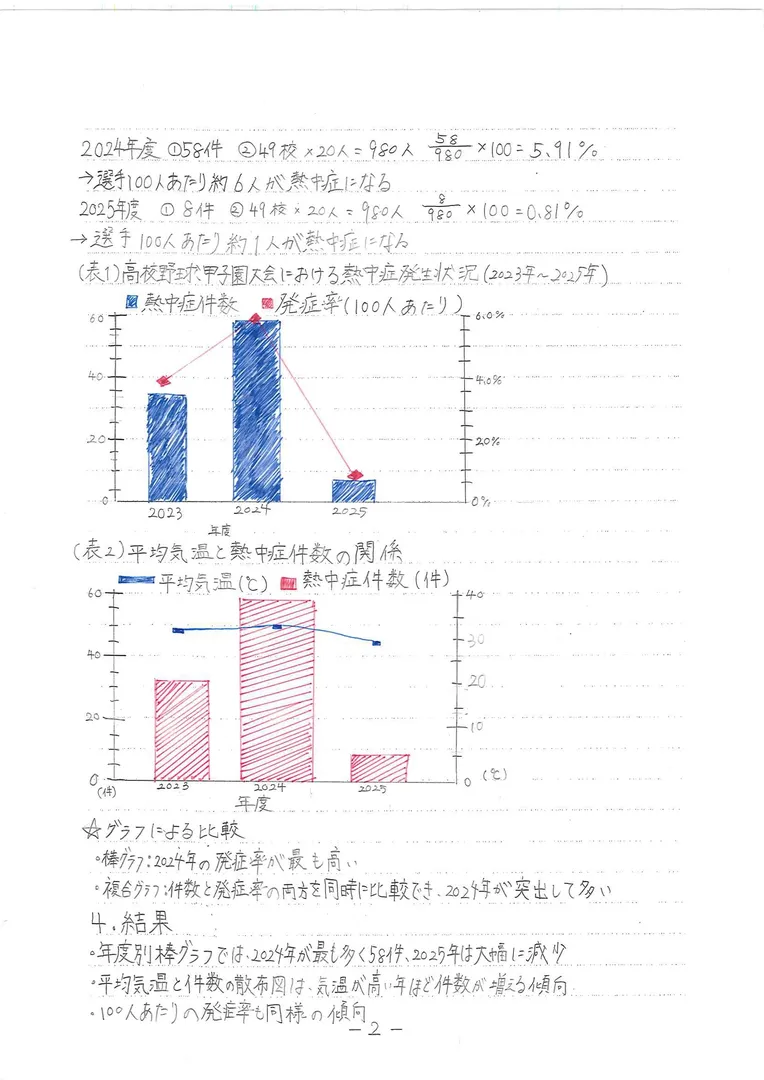 2024年度 ①58件 ②49校×20人=980人 58/980×100=5.91%
→選手100人あたり約6人が熱中症になる
2025年度 ①8件 ②49校×20人=980人 8/980×100=0.81%
→選手100人あたり約1人が熱中症になる
(表1)高校野球甲子園大会における熱中症発生状況(2023年~2025年)
熱中症件数 発症率(100人あたり)
60 6.0%
40 4.0%
20 2.0%
0 0%
2023 2024 2025
年度
(表2)平均気温と熱中症件数の関係
平均気温(℃) 熱中症件数(件)
60 40
40 30
20 20
10
0 0 (℃)
(件) 2023 2024 2025
年度
☆グラフによる比較
・棒グラフ:2024年の発症率が最も高い
・複合グラフ:件数と発症率の両方を同時に比較でき、2024年が突出して多い
4.結果
・年度別棒グラフでは、2024年が最も多く58件、2025年は大幅に減少
・平均気温と件数の散布図は、気温が高い年ほど件数が増える傾向
・100人あたりの発症率も同様の傾向
-2-